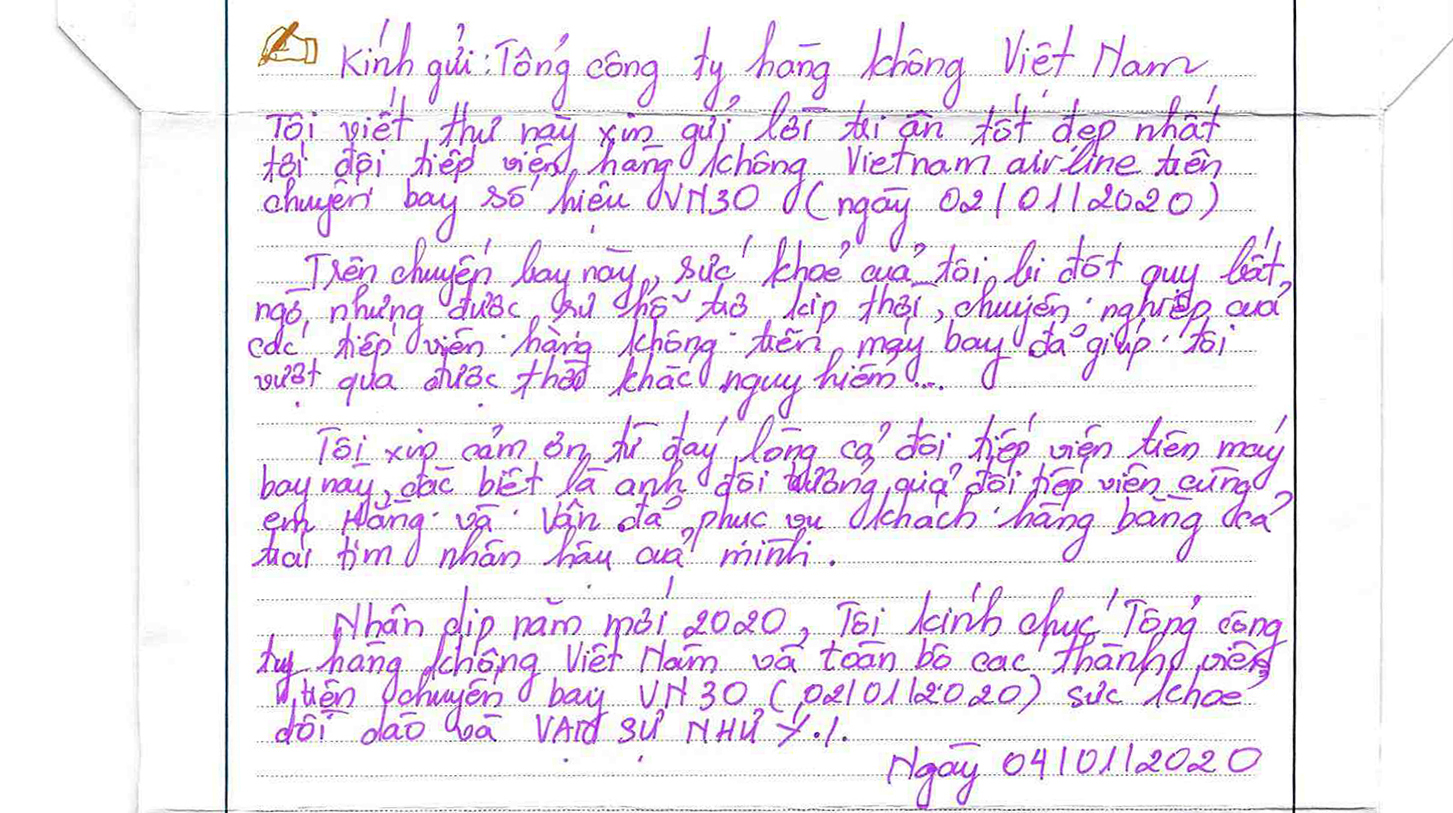 Kính gửi: Tổng công ty hàng không Việt Nam
Tôi viết thư này xin gửi lời tri ân tốt đẹp nhất
tới đội tiếp viên hàng không Vietnam airline trên
chuyến bay số hiệu VN30 (ngày 02/01/2020)
Trên chuyến bay này, sức khoẻ của tôi bị đột quỵ bất
ngờ, nhưng được sự hỗ trợ kịp thời, chuyên nghiệp của
các tiếp viên hàng không trên máy bay đã giúp tôi
vượt qua được thời khắc nguy hiểm...
Tôi xin cảm ơn từ đáy lòng cả đội tiếp viên trên máy
bay này, đặc biệt là anh đội trưởng của đội tiếp viên cùng
em Hằng và Vân đã phục vụ khách hàng bằng cả
trái tim nhân hậu của mình.
Nhân dịp năm mới 2020, Tôi kính chúc Tổng công
ty hàng không Việt Nam và toàn bộ các thành viên
trên chuyến bay VN30 (02/01/2020) sức khoẻ
dồi dào và VẠN SỰ NHƯ Ý./.
Ngày 04/01/2020